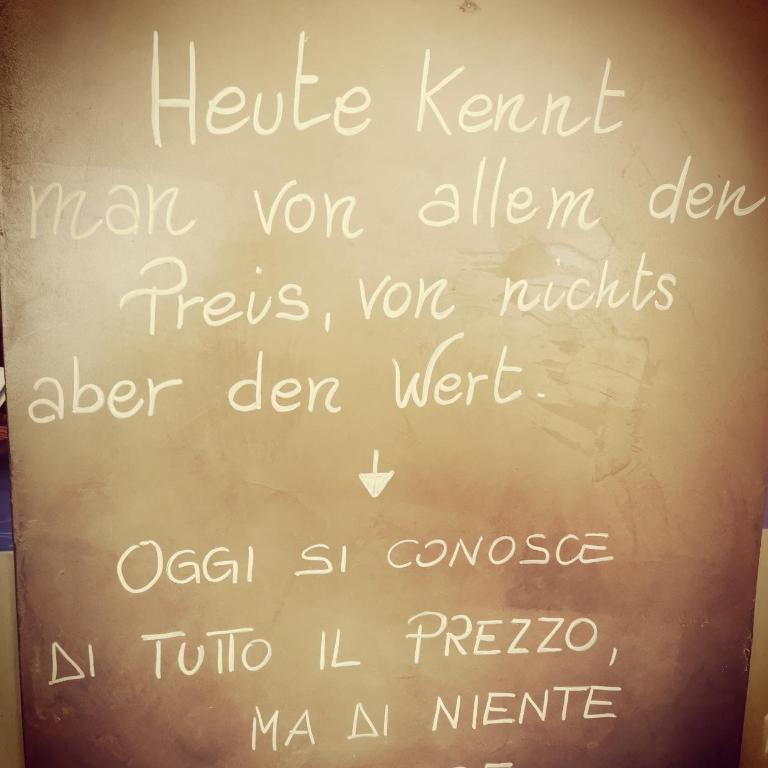 Heute kennt
man von allem den
Preis, von nichts
aber den Wert.
OGGI SI CONOSCE
DI TUTTO IL PREZZO,
MA DI NIENTE